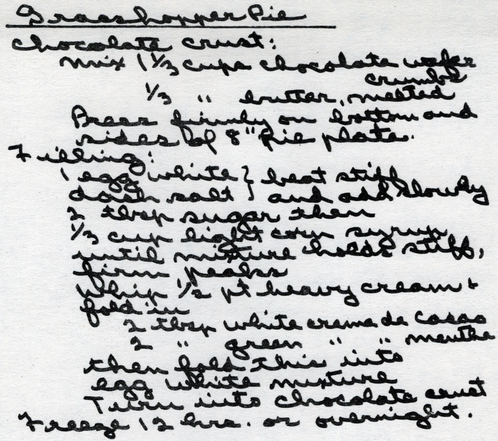 Grasshopper Pie
Chocolate crust:
mix 1 1/3 cups chocolate wafer
crumbs
1/3 " butter, melted
Press firmly on bottom and
sides of 8" pie plate.
Filling:
1 egg white } beat stiff
dash salt } and add slowly
2 tbsp sugar then
1/3 cup light corn syrup
until mixture holds stiff,
firm peaks
Whip 1/2 pt heavy cream +
fold in
2 tbsp white creme de cacao
2 " green " " menthe
then fold this into
egg white mixture
Turn into chocolate crust
Freeze 12 hrs. or overnight.